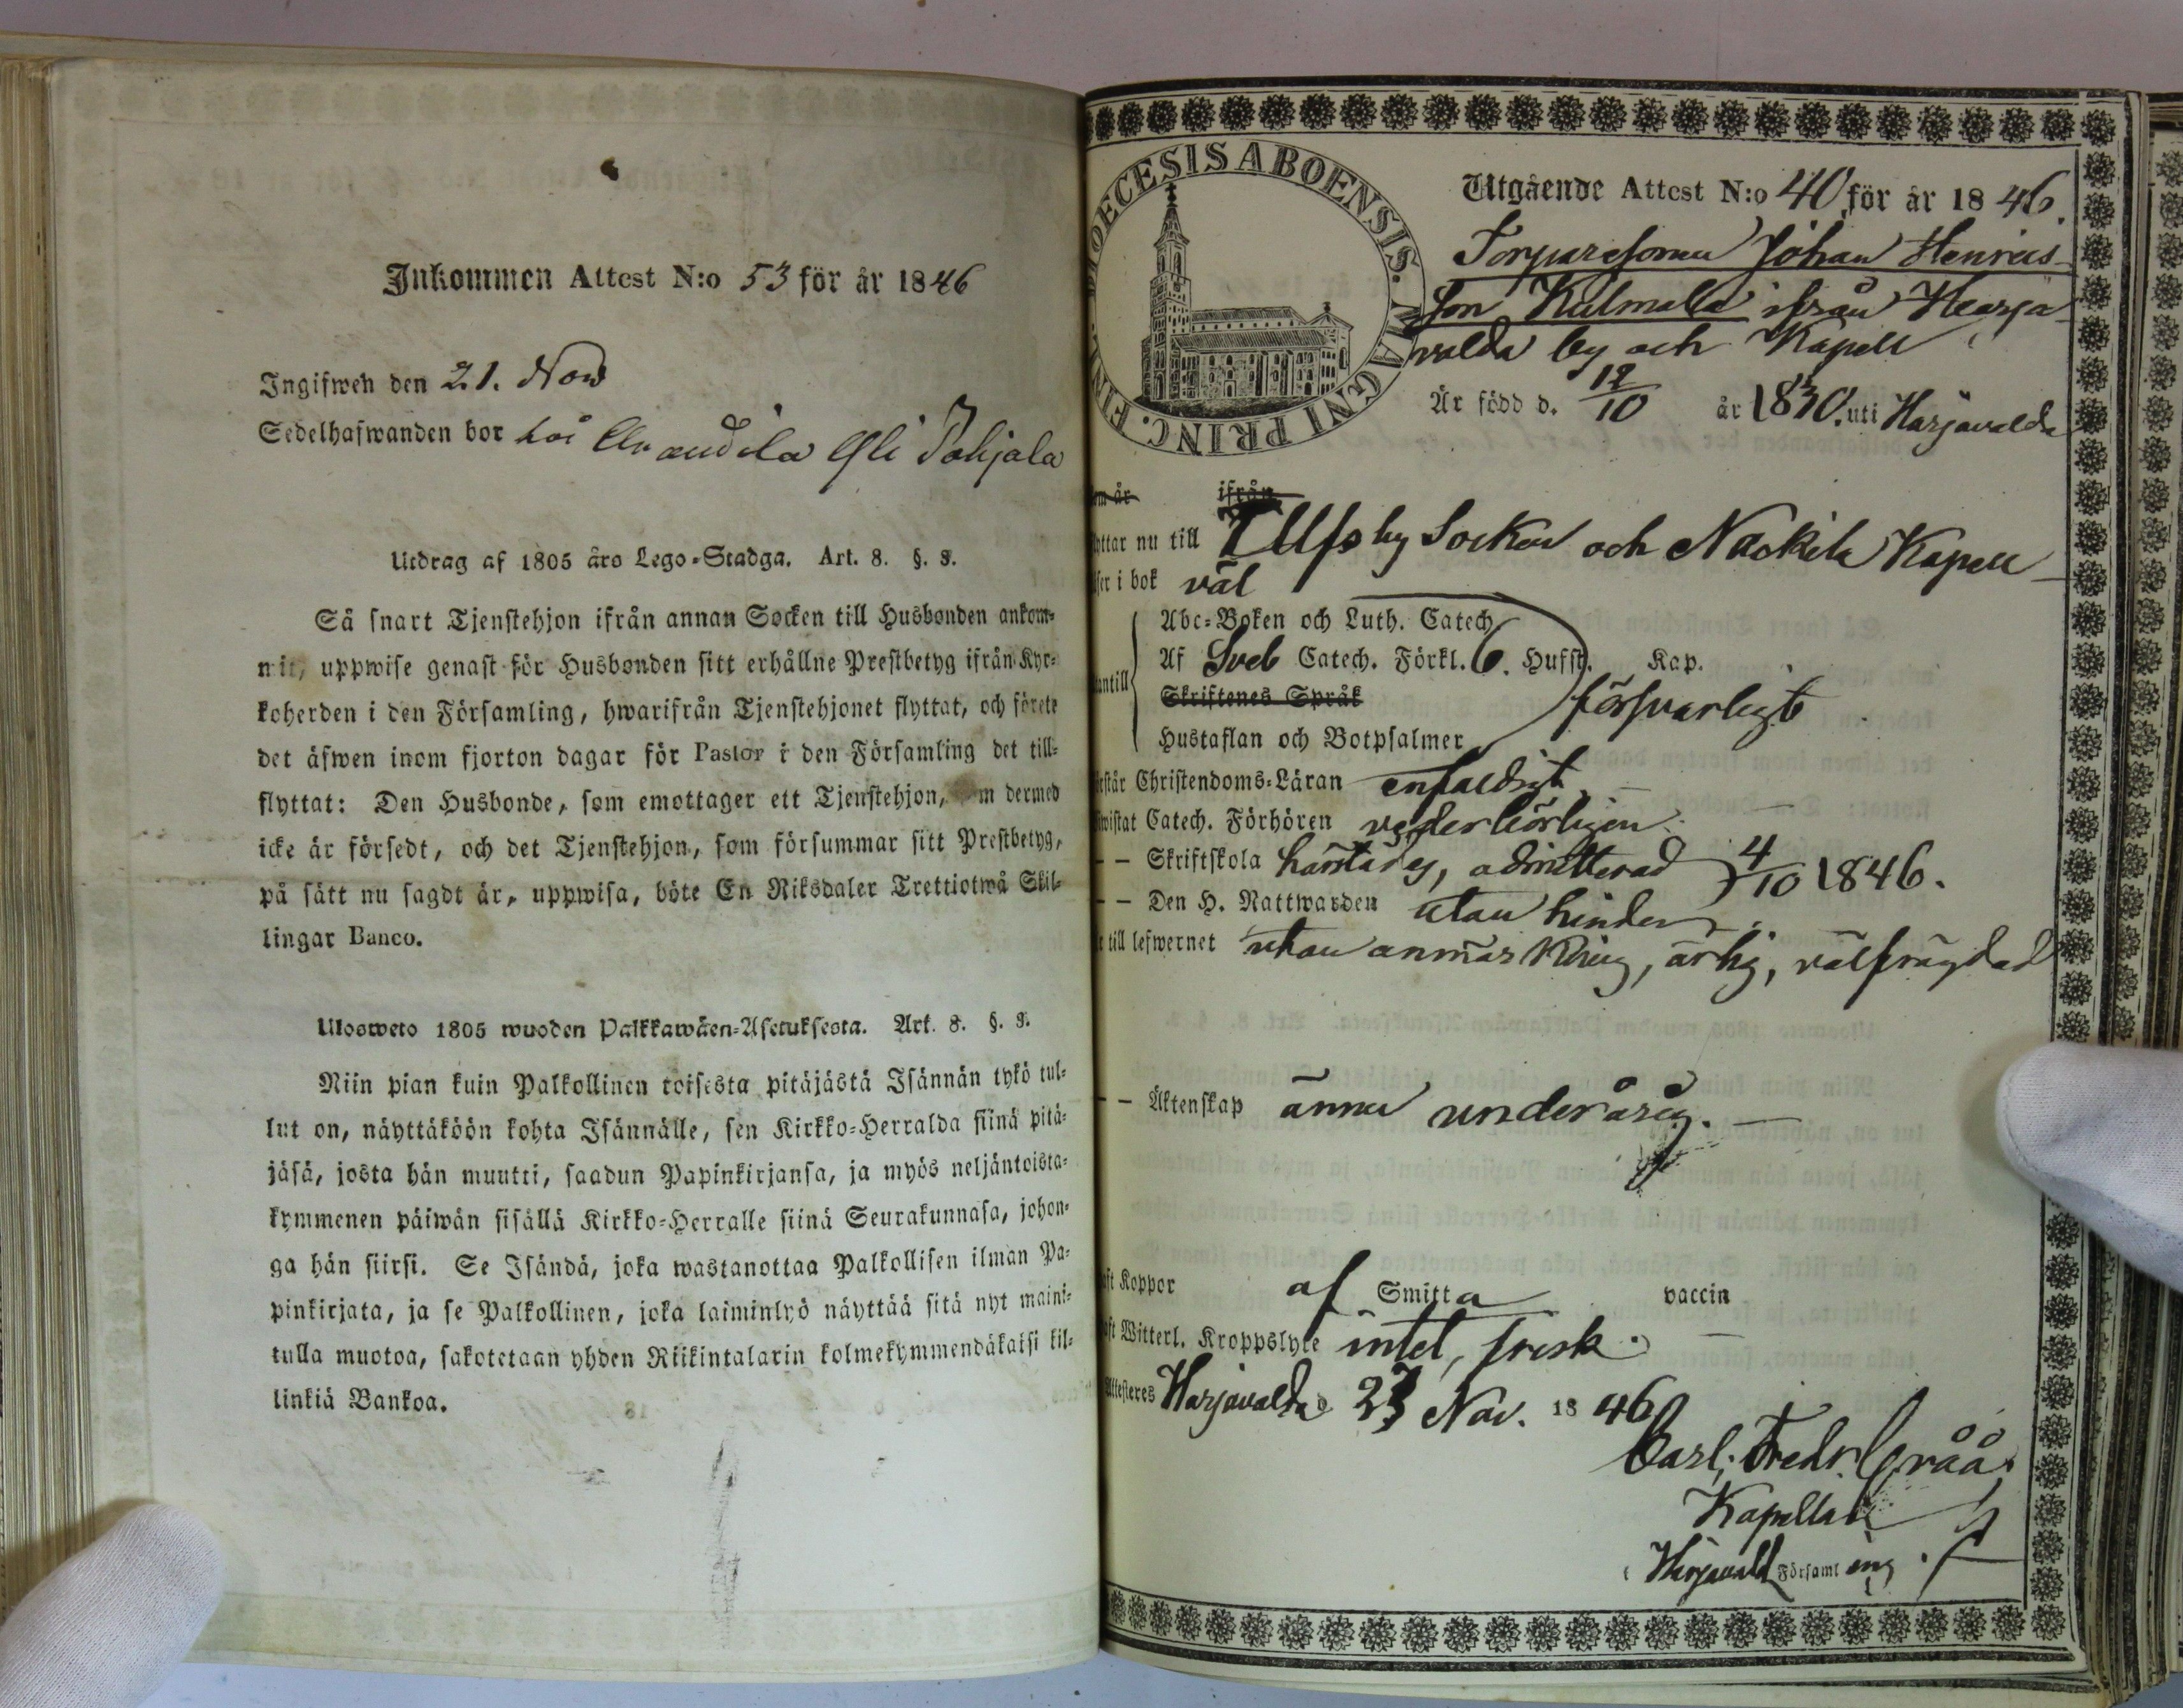 Inkommen Attest N:o 53 för år 1846
Ingifwen den 21. Nov
Sedelhafwanden bor hos Anundila Yli Pohjala
Utdrag af 1805 års Lego-Stadga. Art. 8. §. 3.
Så snart Tjenstehjon ifrån annan Socken till Husbonden ankom-
mit, uppwise genast för Husbonden sitt erhållne Prestbetyg ifrån Kyr-
koherden i den Församling, hwarifrån Tjenstehjonet flyttat, och förete
det äfwen inom fjorton dagar för Pastor i den Församling det till-
flyttat: Den Husbonde, som emottager ett Tjenstehjon, m dermed
icke är försedt, och det Tjenstehjon, som försummar sitt Prestbetyg,
på sätt nu sagdt är, uppwisa, böte En Riksdaler Trettiotwå Skil-
lingar Banco.
Ulosweto 1805 wuoden Palkkawäen-Asetuksesta. Art. 8. §. 3.
Niin pian kuin Palkollinen toisesta pitäjästä Isännän tykö tul-
lut on, näyttäköön kohta Isännälle, sen Kirkko-Herralda siinä pitä-
jäsä, josta hän muutti, saadun Papinkirjansa, ja myös neljäntoista-
kymmenen päiwän sisällä Kirkko-Herralle siinä Seurakunnasa, johon-
ga hän siirsi. Se Isändä, joka wastanottaa Palkollisen ilman Pa-
pinkirjata, ja se Palkollinen, joka laiminlyö näyttää sitä nyt maini-
tulla muotoa, sakotetaan yhden Riikintalarin kolmekymmendäkaksi kil-
linkiä Bankoa.
DIOECESIS ABOENSIS. MAGNI PRINC. FINL.
Utgående Attest N:o 40 för år 1846.
Torparesonen Johan Henrics-
son Kulmala ifrån Harja-
valda by och Kapell
Är född d. 12/10 år 1830. uti Harjavalda
om år ifrån
yttar nu till Ulfsby Socken och Nackila Kapell
ser i bok väl
Abc-Boken och Luth. Catech.
Af Sveb Catech. Förkl. 6. Hufst. Kap.
antill
Skriftenes Språk försvarligt
Hustaflan och Botpsalmer
rstår Christendoms-Läran enfaldigt
wistat Catech. Förhören vederbörligen.
– – Skriftskola härstädes, admitterad 4/10 1846.
– – Den H. Nattwarden utan hinder.
r till lefwernet utan anmärkning, ärlig, välfrägdad
– – Äktenskap ännu underårig.
aft Koppor af Smitta vaccin
aft Witterl. Kroppslyte intet, frisk.
Attesteres Harjavalda d 23 Nov. 1846
Carl. Fredr. Gråå.
Kapellan
i Harjavald Församling.